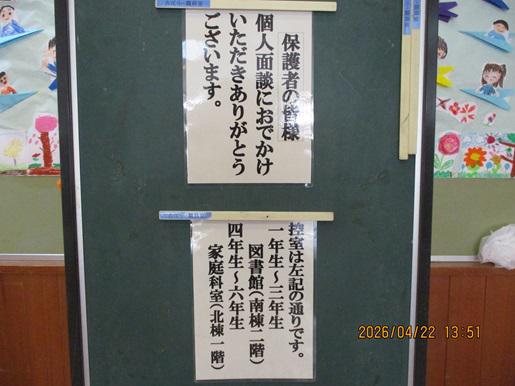 保護者の皆様
個人面談におでかけ
いただきありがとう
ございます。
控室は左記の通りです。
一年生～三年生
図書館（南棟二階）
四年生～六年生
家庭科室（北棟一階）
2026/04/22 13:51